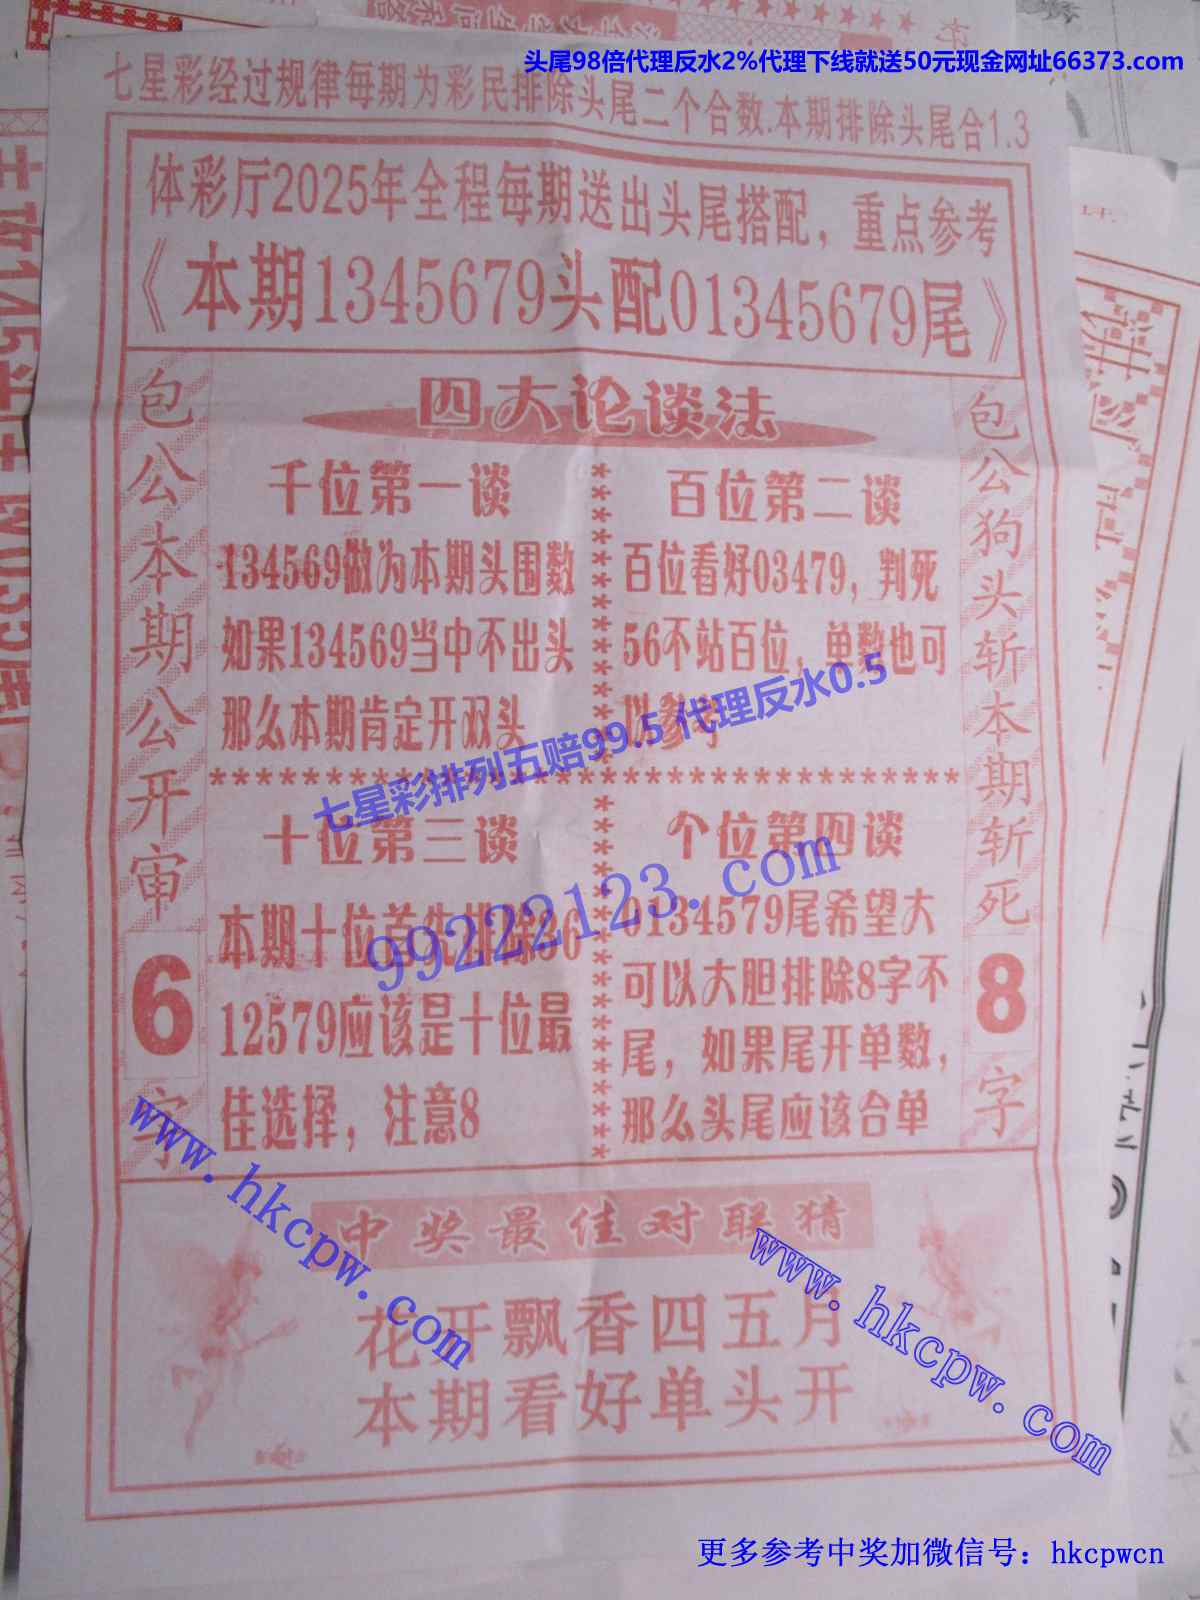 头尾98倍代理反水2%代理下线就送50元现金网址66373.com
七星彩经过规律每期为彩民排除头尾二个合数.本期排除头尾合1.3
体彩厅2025年全程每期送出头尾搭配，重点参考
《本期1345679头配01345679尾》
包公本期公开审
6
字
四大论谈法
千位第一谈
134569做为本期头围数
如果134569当中不出头
那么本期肯定开双头
百位第二谈
百位看好03479，判死
56不站百位，单数也可
以参考
七星彩排列五赔99.5 代理反水0.5
十位第三谈
本期十位首先排除36
12579应该是十位最
佳选择，注意8
个位第四谈
0134579尾希望大
可以大胆排除8字不
尾，如果尾开单数，
那么头尾应该合单
99222123.com
包公狗头斩本期斩死
8
字
www.hkcpw.com
www.hkcpw.com
中奖最佳对联猜
花开飘香四五月
本期看好单头开
更多参考中奖加微信号：hkcpwcn